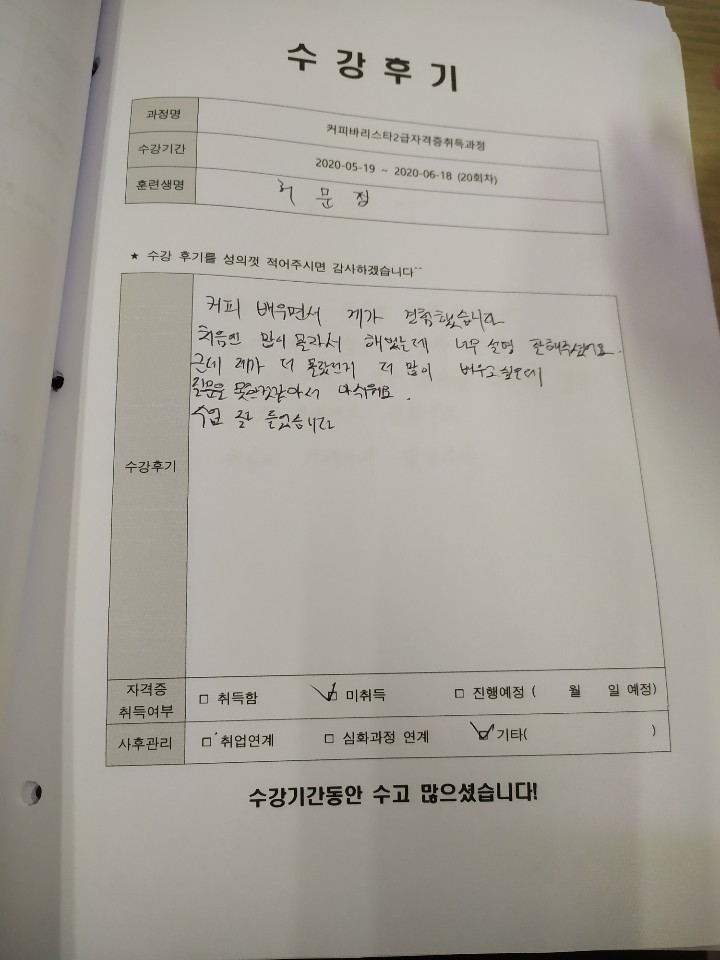 수강후기
과정명 커피바리스타2급자격증취득과정
수강기간 2020-05-19 ~ 2020-06-18 (20회차)
훈련생명 허 문 정
★ 수강 후기를 성의껏 적어주시면 감사하겠습니다^^
수강후기
커피 배우면서 제가 경험했습니다
처음엔 많이 몰라서 해맸는데 너무 설명 잘해주셨어요.
근데 제가 더 몰랐던지 더 많이 배우고싶은데
질문을 못한것같아서 아쉬워요.
수업 잘 들었습니다
자격증 취득여부 □ 취득함 ☑ 미취득 □ 진행예정 ( 월 일 예정)
사후관리 □ 취업연계 □ 심화과정 연계 ☑ 기타( )
수강기간동안 수고 많으셨습니다!